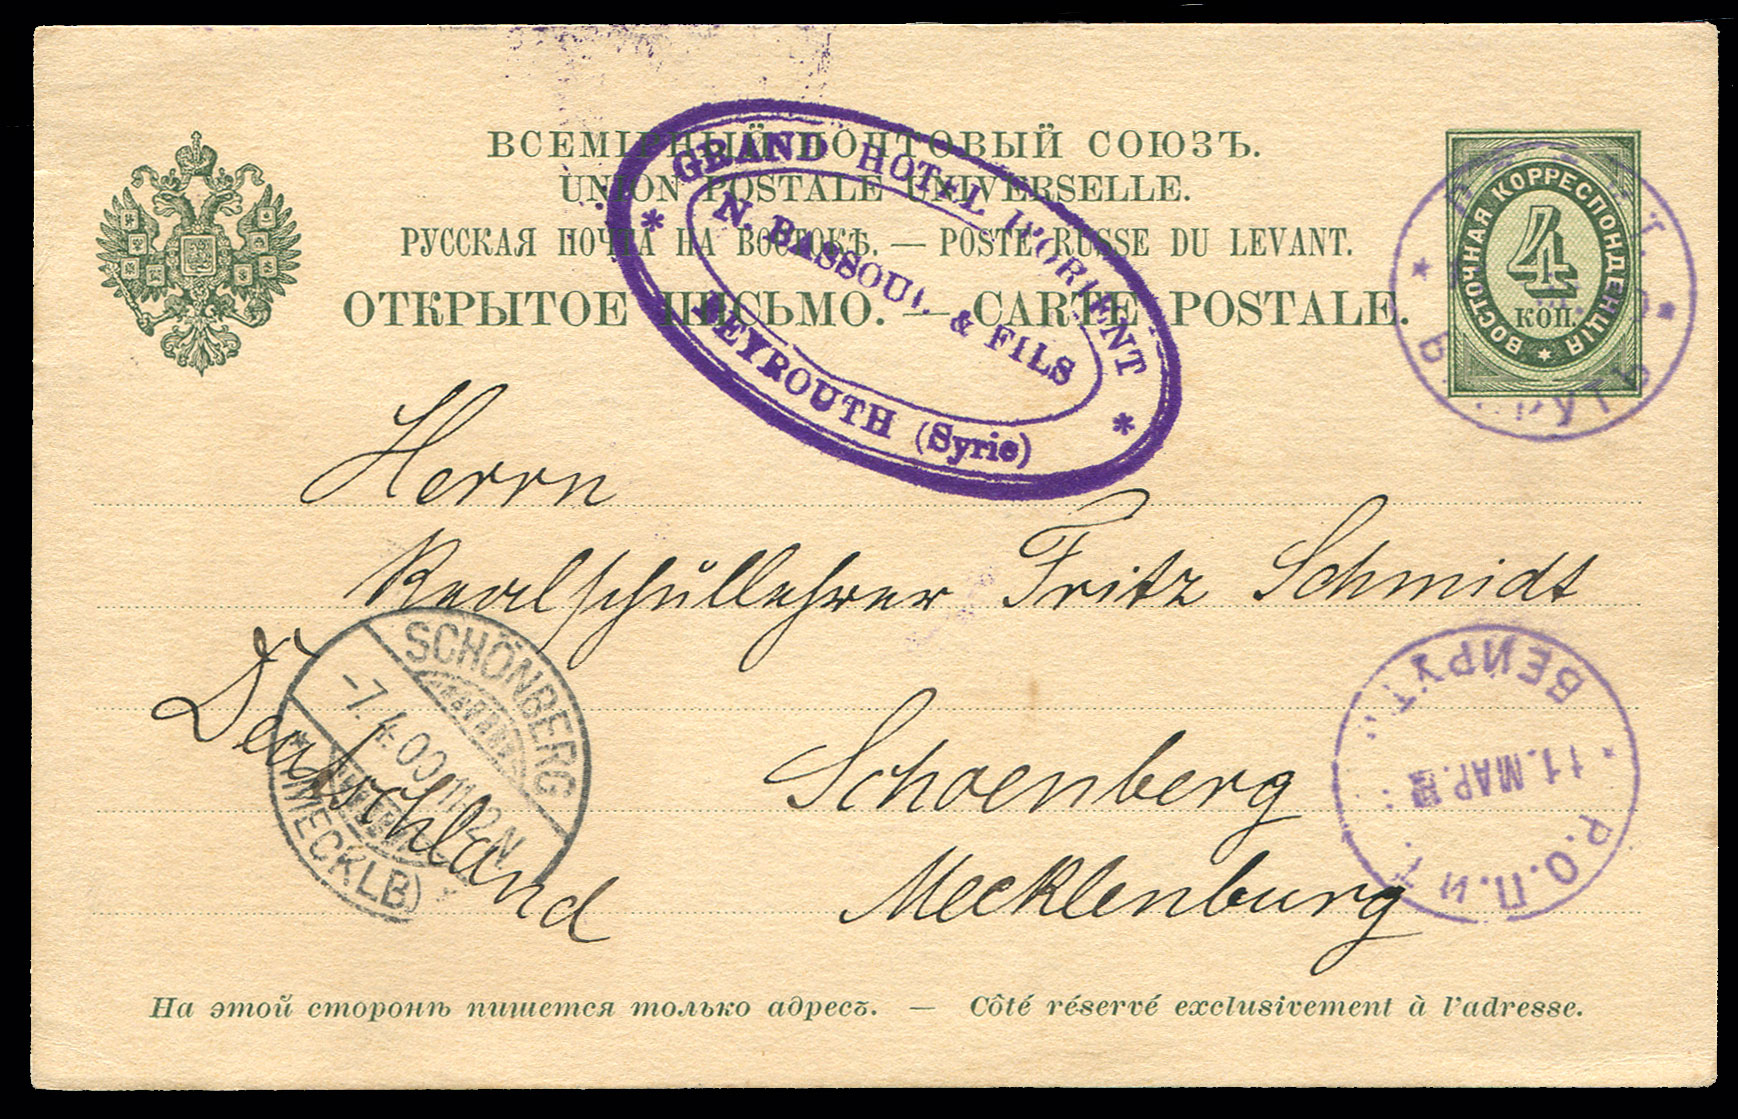 ВСЕМІРНЫЙ ПОЧТОВЫЙ СОЮЗЪ.
UNION POSTALE UNIVERSELLE.
РУССКАЯ ПОЧТА НА ВОСТОКѢ. — POSTE RUSSE DU LEVANT.
ОТКРЫТОЕ ПИСЬМО. — CARTE POSTALE.
GRAND HOTEL D'ORIENT
N. BASSOUL & FILS
BEYROUTH (Syrie)
ВОСТОЧНАЯ КОРРЕСПОНДЕНЦІЯ
4
КОП.
БЕЙРУТЪ
Herrn
Realschullehrer Fritz Schmidt
Schoenberg
Mecklenburg
Deutschland
SCHÖNBERG
-7.4.00.11-12N
* (MECKLB) *
БЕЙРУТЪ
11.МАР.
Р.О.П.иТ.
На этой сторонѣ пишется только адресъ. — Côté réservé exclusivement à l'adresse.